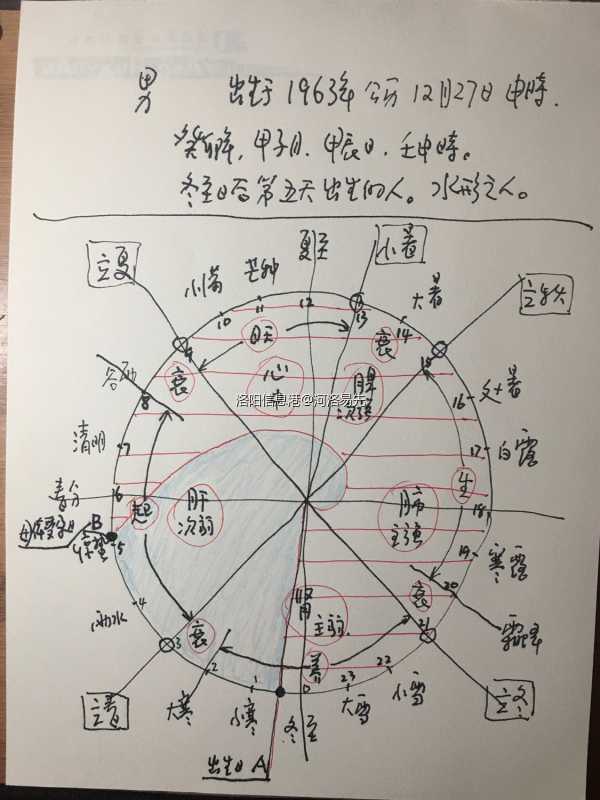 男 出生于1963年公历12月27日申時.
癸卯年,甲子月.甲辰日.壬申時。
冬至日后第五天出生的人。水形之人。
夏至
小暑
立夏
小满
芒种
大暑
立秋
12
11
10
13
14
15
9
旺
衰
衰
谷雨
心
洛阳信息港@河洛易先
8
16
处暑
清明
7
17
白露
生
春分
6
起
肝
次弱
肺
主强
18
B
5
19
寒露
4
雨水
衰
肾
主弱
衰
20
霜降
3
21
养
22
2
1
0
23
立春
大寒
小寒
冬至
大雪
小雪
立冬
出生日A